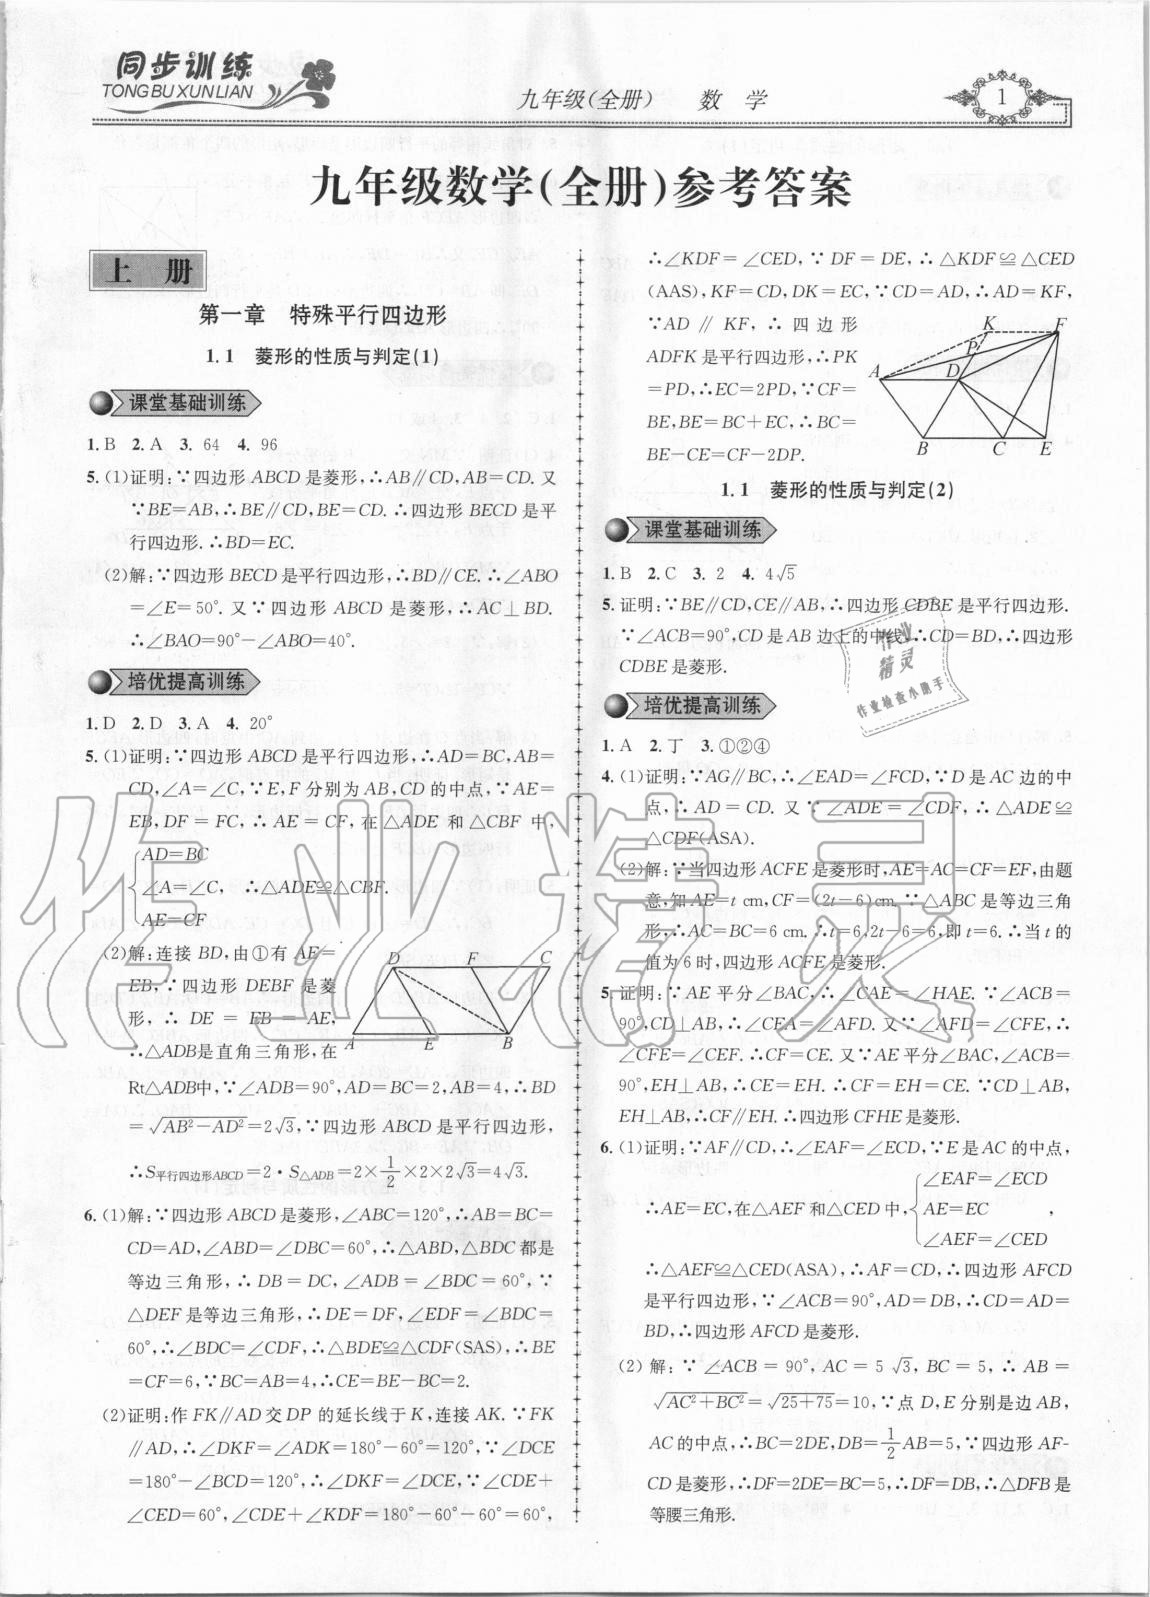 同步训练
TONGBUXUNLIAN
九年级(全册) 数 学
1
九年级数学(全册)参考答案
上 册
第一章 特殊平行四边形
1.1 菱形的性质与判定(1)
课堂基础训练
1.B 2.A 3.64 4.96
5.(1)证明:∵四边形ABCD是菱形,∴AB∥CD,AB=CD.又
∵BE=AB,∴BE∥CD,BE=CD.∴四边形BECD是平
行四边形.∴BD=EC.
(2)解:∵四边形BECD是平行四边形,∴BD∥CE.∴∠ABO
=∠E=50°.又∵四边形ABCD是菱形,∴AC⊥BD.
∴∠BAO=90°-∠ABO=40°.
培优提高训练
1.D 2.D 3.A 4.20°
5.(1)证明:∵四边形ABCD是平行四边形,∴AD=BC,AB=
CD,∠A=∠C,∵E,F分别为AB,CD的中点,∵AE=
EB,DF=FC,∴AE=CF,在△ADE和△CBF中,
AD=BC
∠A=∠C, ∴△ADE≌△CBF.
AE=CF
(2)解:连接BD,由①有AE=
EB,∵四边形DEBF是菱
形,∴DE=EB=AE,
∴△ADB是直角三角形,在
D F C
A E B
Rt△ADB中,∵∠ADB=90°,AD=BC=2,AB=4,∴BD
=√(AB²-AD²)=2√3,∵四边形ABCD是平行四边形,
∴S平行四边形ABCD=2·S△ADB=2×1/2×2×2√3=4√3.
6.(1)解:∵四边形ABCD是菱形,∠ABC=120°,∴AB=BC=
CD=AD,∠ABD=∠DBC=60°,∴△ABD,△BDC都是
等边三角形,∴DB=DC,∠ADB=∠BDC=60°,∵
△DEF是等边三角形,∴DE=DF,∠EDF=∠BDC=
60°,∴∠BDC=∠CDF,∴△BDE≌△CDF(SAS),∴BE
=CF=6,∵BC=AB=4,∴CE=BE-BC=2.
(2)证明:作FK∥AD交DP的延长线于K,连接AK.∵FK
∥AD,∴∠DKF=∠ADK=180°-60°=120°,∵∠DCE
=180°-∠BCD=120°,∴∠DKF=∠DCE,∵∠CDE+
∠CED=60°,∠CDE+∠KDF=180°-60°-60°=60°,
∴∠KDF=∠CED,∵DF=DE,∴△KDF≌△CED
(AAS),KF=CD,DK=EC,∵CD=AD,∴AD=KF,
∵AD∥KF,∴四边形
ADFK是平行四边形,∴PK
=PD,∴EC=2PD,∵CF=
BE,BE=BC+EC,∴BC=
BE-CE=CF-2DP.
K F
P
A D
B C E
1.1 菱形的性质与判定(2)
课堂基础训练
1.B 2.C 3.2 4.4√5
5.证明:∵BE∥CD,CE∥AB,∴四边形CDBE是平行四边形.
∵∠ACB=90°,CD是AB边上的中线,∴CD=BD,∴四边形
CDBE是菱形.
培优提高训练
1.A 2.丁 3.①②④
4.(1)证明:∵AG∥BC,∴∠EAD=∠FCD,∵D是AC边的中
点,∴AD=CD.又∵∠ADE=∠CDF,∴△ADE≌
△CDF(ASA).
(2)解:∵当四边形ACFE是菱形时,AE=AC=CF=EF,由题
意,知AE=t cm,CF=(2t-6)cm.∵△ABC是等边三角
形,∴AC=BC=6 cm.∴t=6,2t-6=6,即t=6.∴当t的
值为6时,四边形ACFE是菱形.
5.证明:∵AE平分∠BAC,∴∠CAE=∠HAE.∵∠ACB=
90°,CD⊥AB,∴∠CEA=∠AFD.又∵∠AFD=∠CFE,∴
∠CFE=∠CEF.∴CF=CE.又∵AE平分∠BAC,∠ACB=
90°,EH⊥AB,∴CE=EH.∴CF=EH=CE.∵CD⊥AB,
EH⊥AB,∴CF∥EH.∴四边形CFHE是菱形.
6.(1)证明:∵AF∥CD,∴∠EAF=∠ECD,∵E是AC的中点,
∠EAF=∠ECD
∴AE=EC,在△AEF和△CED中,AE=EC ,
∠AEF=∠CED
∴△AEF≌△CED(ASA),∴AF=CD,∴四边形AFCD
是平行四边形,∵∠ACB=90°,AD=DB,∴CD=AD=
BD,∴四边形AFCD是菱形.
(2)解:∵∠ACB=90°,AC=5√3,BC=5,∴AB=
√(AC²+BC²)=√(25+75)=10,∵点D,E分别是边AB,
AC的中点,∴BC=2DE,DB=1/2AB=5,∵四边形AF-
CD是菱形,∴DF=2DE=BC=5,∴DF=DB,∴△DFB是
等腰三角形.
作业
精灵
作业检查小助手
作业精灵